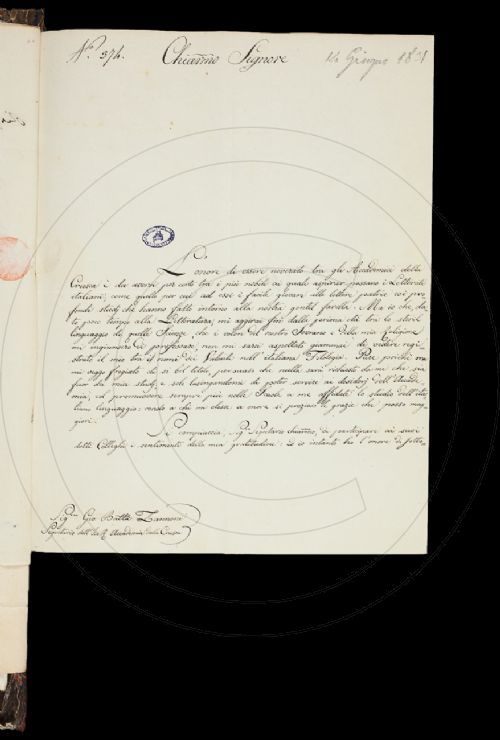 N.° 374.
Chiarmo Signore
14 Giugno 1831
L'onore di essere noverato tra gli Accademici della
Crusca è da aversi per certo tra i più nobili ai quali aspirar possano i Letterati
italiani, come quello per cui ad essi è facile giovare alle lettere patrie coi pro-
fondi studj che hanno fatto intorno alla nostra gentil favella. Ma io che, da-
to poco tempo alla Letteratura, mi
linguaggio di quelle Scienze, che a onore del nostro e della mia Religione
mi ingiunsero di professare, non mi sarei aspettato giammai di vedere regi-
strato il mio tra i nomi dei nell'italiana Filologia. Pure poichè ora
mi veggo fregiato di sì bel titolo, che nulla sarà da me che sia
fuor da' miei studj, e sol lusingandomi di poter servire ai desiderj dell'Accade-
mia, col promuovere sempre più nelle Scuole a me affidate lo studio dell'ita-
liano linguaggio, rendo a chi mi elesse a onore sì pregiato le grazie che posso mag-
giori.
Si compiaccia, Sig.r Segretario chiarmo, di partecipare ai suoi
dotti Colleghi i sentimenti della mia gratitudine; ed io intanto ho l'onore di
Sig.r Gio. Batta Zannoni
Segretario dell' Accademia della Crusca